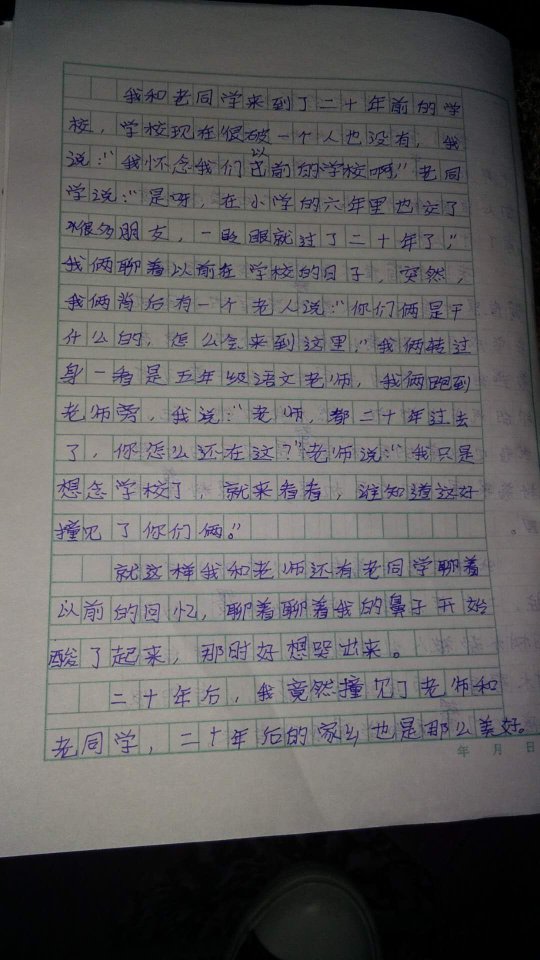 我和老同学来到了二十年前的学
校，学校现在很破一个人也没有，我
说：“我怀念我们以前的学校啊，”老同
学说：“是呀，在小学的六年里也交了
很多朋友，一眨眼就过了二十年了，”
我俩聊着以前在学校的日子，突然，
我俩背后有一个老人说：“你们俩是干
什么的，怎么会来到这里，”我俩转过
身一看是五年级语文老师，我俩跑到
老师旁，我说：“老师，都二十年过去
了，你怎么还在这？”老师说：“我只是
想念学校了，就来看看，谁知道这好
撞见了你们俩。”
就这样我和老师还有老同学聊着
以前的回忆，聊着聊着我的鼻子开始
酸了起来，那时好想哭出来。
二十年后，我竟然撞见了老师和
老同学，二十年后的家乡也是那么美好。
年 月 日